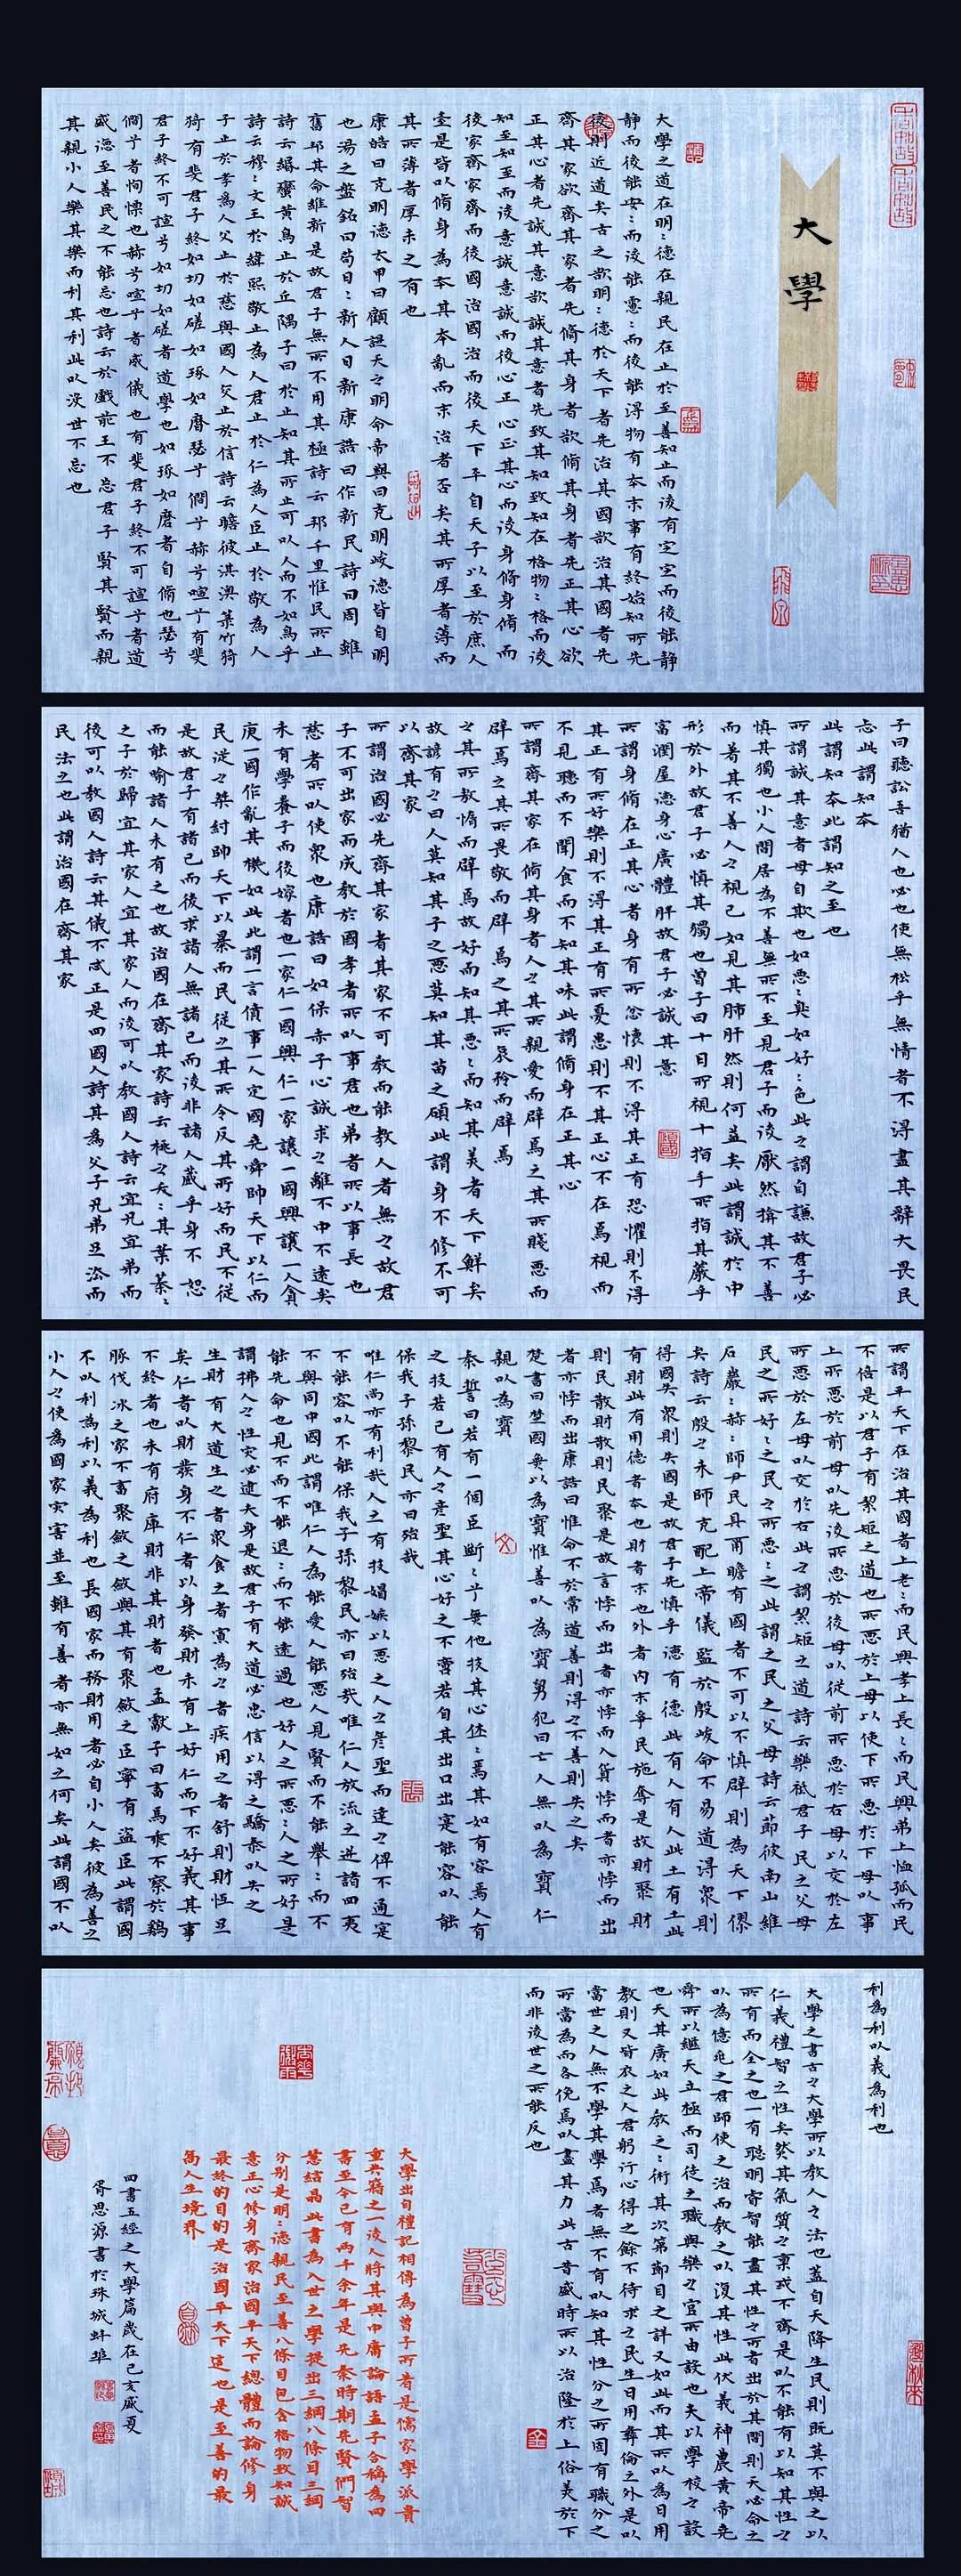 大學
大學之道在明〻德在親民在止於至善知止而後有定定而後能靜
靜而後能安〻而後能慮〻而後能得物有本末事有終始知所先
後則近道矣古之欲明〻德於天下者先治其國欲治其國者先
齊其家欲齊其家者先脩其身者欲脩其身者先正其心欲
正其心者先誠其意欲誠其意者先致其知致知在格物〻格而後
知至知至而後意誠意誠而後心正心正其心而後身脩身脩而
後家齊家齊而後國治國治而後天下平自天子以至於庶人
壹是皆以脩身為本其本亂而末治者否矣其所厚者薄而
其所薄者厚未之有也
康誥曰克明德太甲曰顧諟天之明命帝典曰克明峻德皆自明
也湯之盤銘曰苟日〻新人日新康誥曰作新民詩曰周雖
舊邦其命維新是故君子無所不用其極詩云邦千里惟民所止
詩云緡蠻黃鳥止於丘隅子曰於止知其所止可以人而不如鳥乎
詩云穆〻文王於緝熙敬止為人君止於仁為人臣止於敬為人
子止於孝為人父止於慈與國人交止於信詩云瞻彼淇澳菉竹猗
猗有斐君子終如切如磋如琢如磨瑟兮僩兮赫兮喧兮有斐
君子終不可諠兮如切如磋者道學也如琢如磨者自脩也瑟兮
僩兮者恂慄也赫兮喧兮者威儀也有斐君子終不可諠兮者道
盛德至善民之不能忘也詩云於戲前王不忘君子賢其賢而親
其親小人樂其樂而利其利此以沒世不忘也
子曰聽訟吾猶人也必也使無松乎無情者不得盡其辭大畏民
志此謂知本
此謂知本此謂知之至也
所謂誠其意者毋自欺也如惡〻臭如好〻色此之謂自謙故君子必
慎其獨也小人閒居為不善無所不至見君子而後厭然揜其不善
而著其不善人之視己如見其肺肝然則何益矣此謂誠於中
形於外故君子必慎其獨也曾子曰十目所視十指手所指其嚴乎
富潤屋德身心廣體胖故君子必誠其意
所謂身脩在正其心者身有所忿懷則不得其正有恐懼則不得
其正有所好樂則不得其正有所憂患則不其正心不在焉視而
不見聽而不聞食而不知其味此謂脩身在正其心
所謂齊其家在脩其身者人之其所親愛而辟焉之其所賤惡而
辟焉之其所畏敬而辟焉之其所哀矜而辟焉
之其所敖惰而辟焉故好而知其惡〻而知其美者天下鮮矣
故諺有之曰人莫知其子之惡莫知其苗之碩此謂身不修不可
以齊其家
所謂治國必先齊其家者其家不可教而能教人者無之故君
子不可出家而成教於國孝者所以事君也弟者所以事長也
慈者所以使眾也康誥曰如保赤子心誠求之離不中不遠矣
未有學養子而後嫁者也一家仁一國興仁一家讓一國興讓一人貪
戾一國作亂其機如此此謂一言僨事一人定國堯舜帥天下以仁而
民從之桀紂帥天下以暴而民從之其所令反其所好而民不從
是故君子有諸己而後求諸人無諸己而後非諸人藏乎身不恕
而能喻諸人未有之也故治國在齊其家詩云桃之夭〻其葉蓁〻
之子於歸宜其家人宜其家人而後可以教國人詩云宜兄宜弟而
後可以教國人詩云其儀不忒正是四國人詩其為父子兄弟足添而
民法之也此謂治國在齊其家
所謂平天下在治其國者上老〻而民興孝上長〻而民興弟上恤孤而民
不倍是以君子有絜矩之道也所惡於上毋以使下所惡於下毋以事
上所惡於前毋以先後所惡於後毋以從前所惡於右毋以交於左
所惡於左毋以交於右此之謂絜矩之道詩云樂祗君子民之父母
民之所好〻之民之所惡〻之此謂之民之父母詩云節彼南山維
石巖〻赫〻師尹民具爾瞻有國者不可以不慎辟則為天下僇
矣詩云殷之未師克配上帝儀監於殷峻命不易道得眾則
得國失眾則失國是故君子先慎乎德有德此有人有人此土有土此
有財此有用德者本也財者末也外者內末爭民施奪是故財聚財
則民散財散則民聚是故言悖而出者亦悖而入貨悖而者亦悖而出
者亦悖而出康誥曰惟命不於常道善則得之不善則失之矣
楚書曰楚國無以為寶惟善以為寶舅犯曰亡人無以為寶仁
親以為寶
秦誓曰若有一個臣斷〻乎無他技其心休〻焉其如有容焉人有
之技若己有人之彥聖其心好之不啻若自其出口出寔能容以能
保我子孫黎民亦曰殆哉
唯仁尚亦有利哉人之有技媢嫉以惡之人之彥聖而違之俾不通寔
不能容以不能保我子孫黎民亦曰殆哉唯仁人放流之迸諸四夷
不與同中國此謂唯仁人為能愛人能惡人見賢而不能舉〻而不
能先命也見不而不能退〻而不能遠過也好人之所惡〻人之所好是
謂拂人之性灾必逮夫身是故君子有大道必忠信以得之驕泰以失之
生財有大道生之者眾食之者寡為之者疾用之者舒則財恆足
矣仁者以財發身不仁者以身發財未有上好仁而下不好義其事
不終者也未有府庫財非其財者也孟獻子曰畜馬乘不察於鷄
豚伐冰之家不畜聚斂之斂與其有聚斂之臣寧有盜臣此謂國
不以利為利以義為利也長國家而務財用者必自小人矣彼為善之
小人之使為國家灾害並至雖有善者亦無如之何矣此謂國不以
利為利以義為利也
大學之書古之大學所以教人之法也蓋自天降生民則既莫不與之以
仁義禮智之性矣然其氣質之稟或不齊是以不能有以知其性之
所有而全之也一有聰明睿智能盡其性之所者出於其間則天必命之
以為億兆之君師使之治而教之以復其性此伏羲神農黃帝堯
舜所以繼天立極而司徒之職典樂之官所由設也夫以學校之設
也夫其廣如此教之〻術其次第節目之詳又如此而其所以為日用
教則又皆衣之人君躬行心得之餘不待求之民生日用彝倫之外是以
當世之人無不學其學焉者無不有以知其性分之所固有職分之
所當為而各俛焉以盡其力此古昔盛時所以治隆於上俗美於下
而非後世之所能反也
大學出自禮記相傳為曾子所著是儒家學派貴
重典籍之一後人將其與中庸論語孟子合稱為四
書至今已有兩千余年是先秦時期先賢們智
慧結晶此書為入世之學提出三綱八條目三綱
分別是明〻德親民至善八條目包含格物致知誠
意正心修身齊家治國平天下總體而論修身
最終的目的是治國平天下這也是至善的最
高人生境界
四書五經之大學篇歲在己亥盛夏
胥思源書於珠城蚌埠